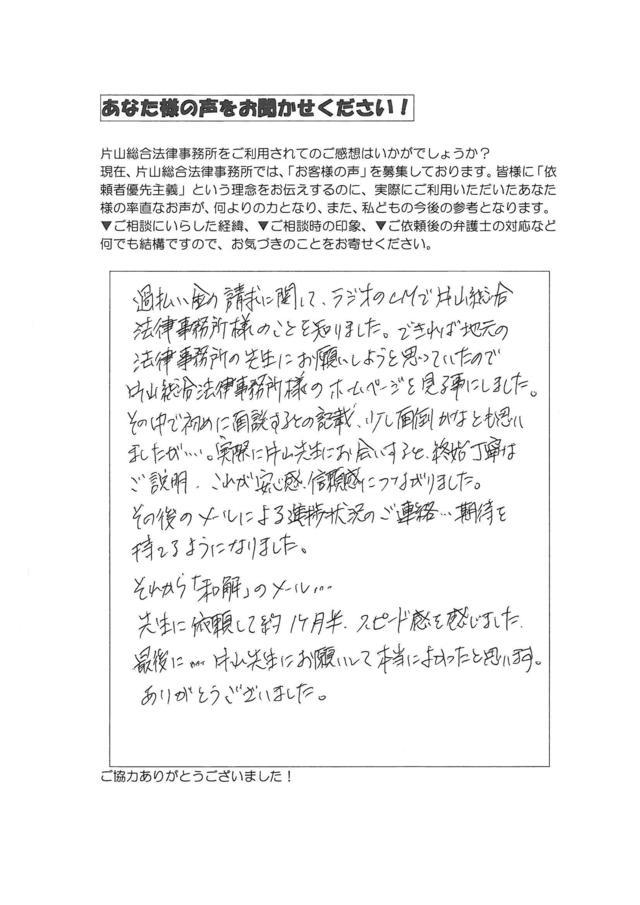 あなた様の声をお聞かせください！
片山総合法律事務所をご利用されてのご感想はいかがでしょうか？
現在、片山総合法律事務所では、「お客様の声」を募集しております。皆様に「依
頼者優先主義」という理念をお伝えするのに、実際にご利用いただいたあなた
様の率直なお声が、何よりの力となり、また、私どもの今後の参考となります。
▼ご相談にいらした経緯、▼ご相談時の印象、▼ご依頼後の弁護士の対応など
何でも結構ですので、お気づきのことをお寄せください。
過払い金の請求に関して、ラジオのCMで片山総合
法律事務所様のことを知りました。できれば地元の
法律事務所の先生にお願いしようと思っていたので
片山総合法律事務所様のホームページを見る事にしました。
その中で初めに面談するとの記載、少し面倒かなとも思い
ましたが…。実際に片山先生にお会いすると、終始丁寧な
ご説明、これが安心感、信頼感につながりました。
その後のメールによる進捗状況のご連絡…期待を
持てるようになりました。
それから「和解」のメール…
先生に依頼して約1ヶ月半、スピード感を感じました。
最後に…片山先生にお願いして本当によかったと思います。
ありがとうございました。
ご協力ありがとうございました！